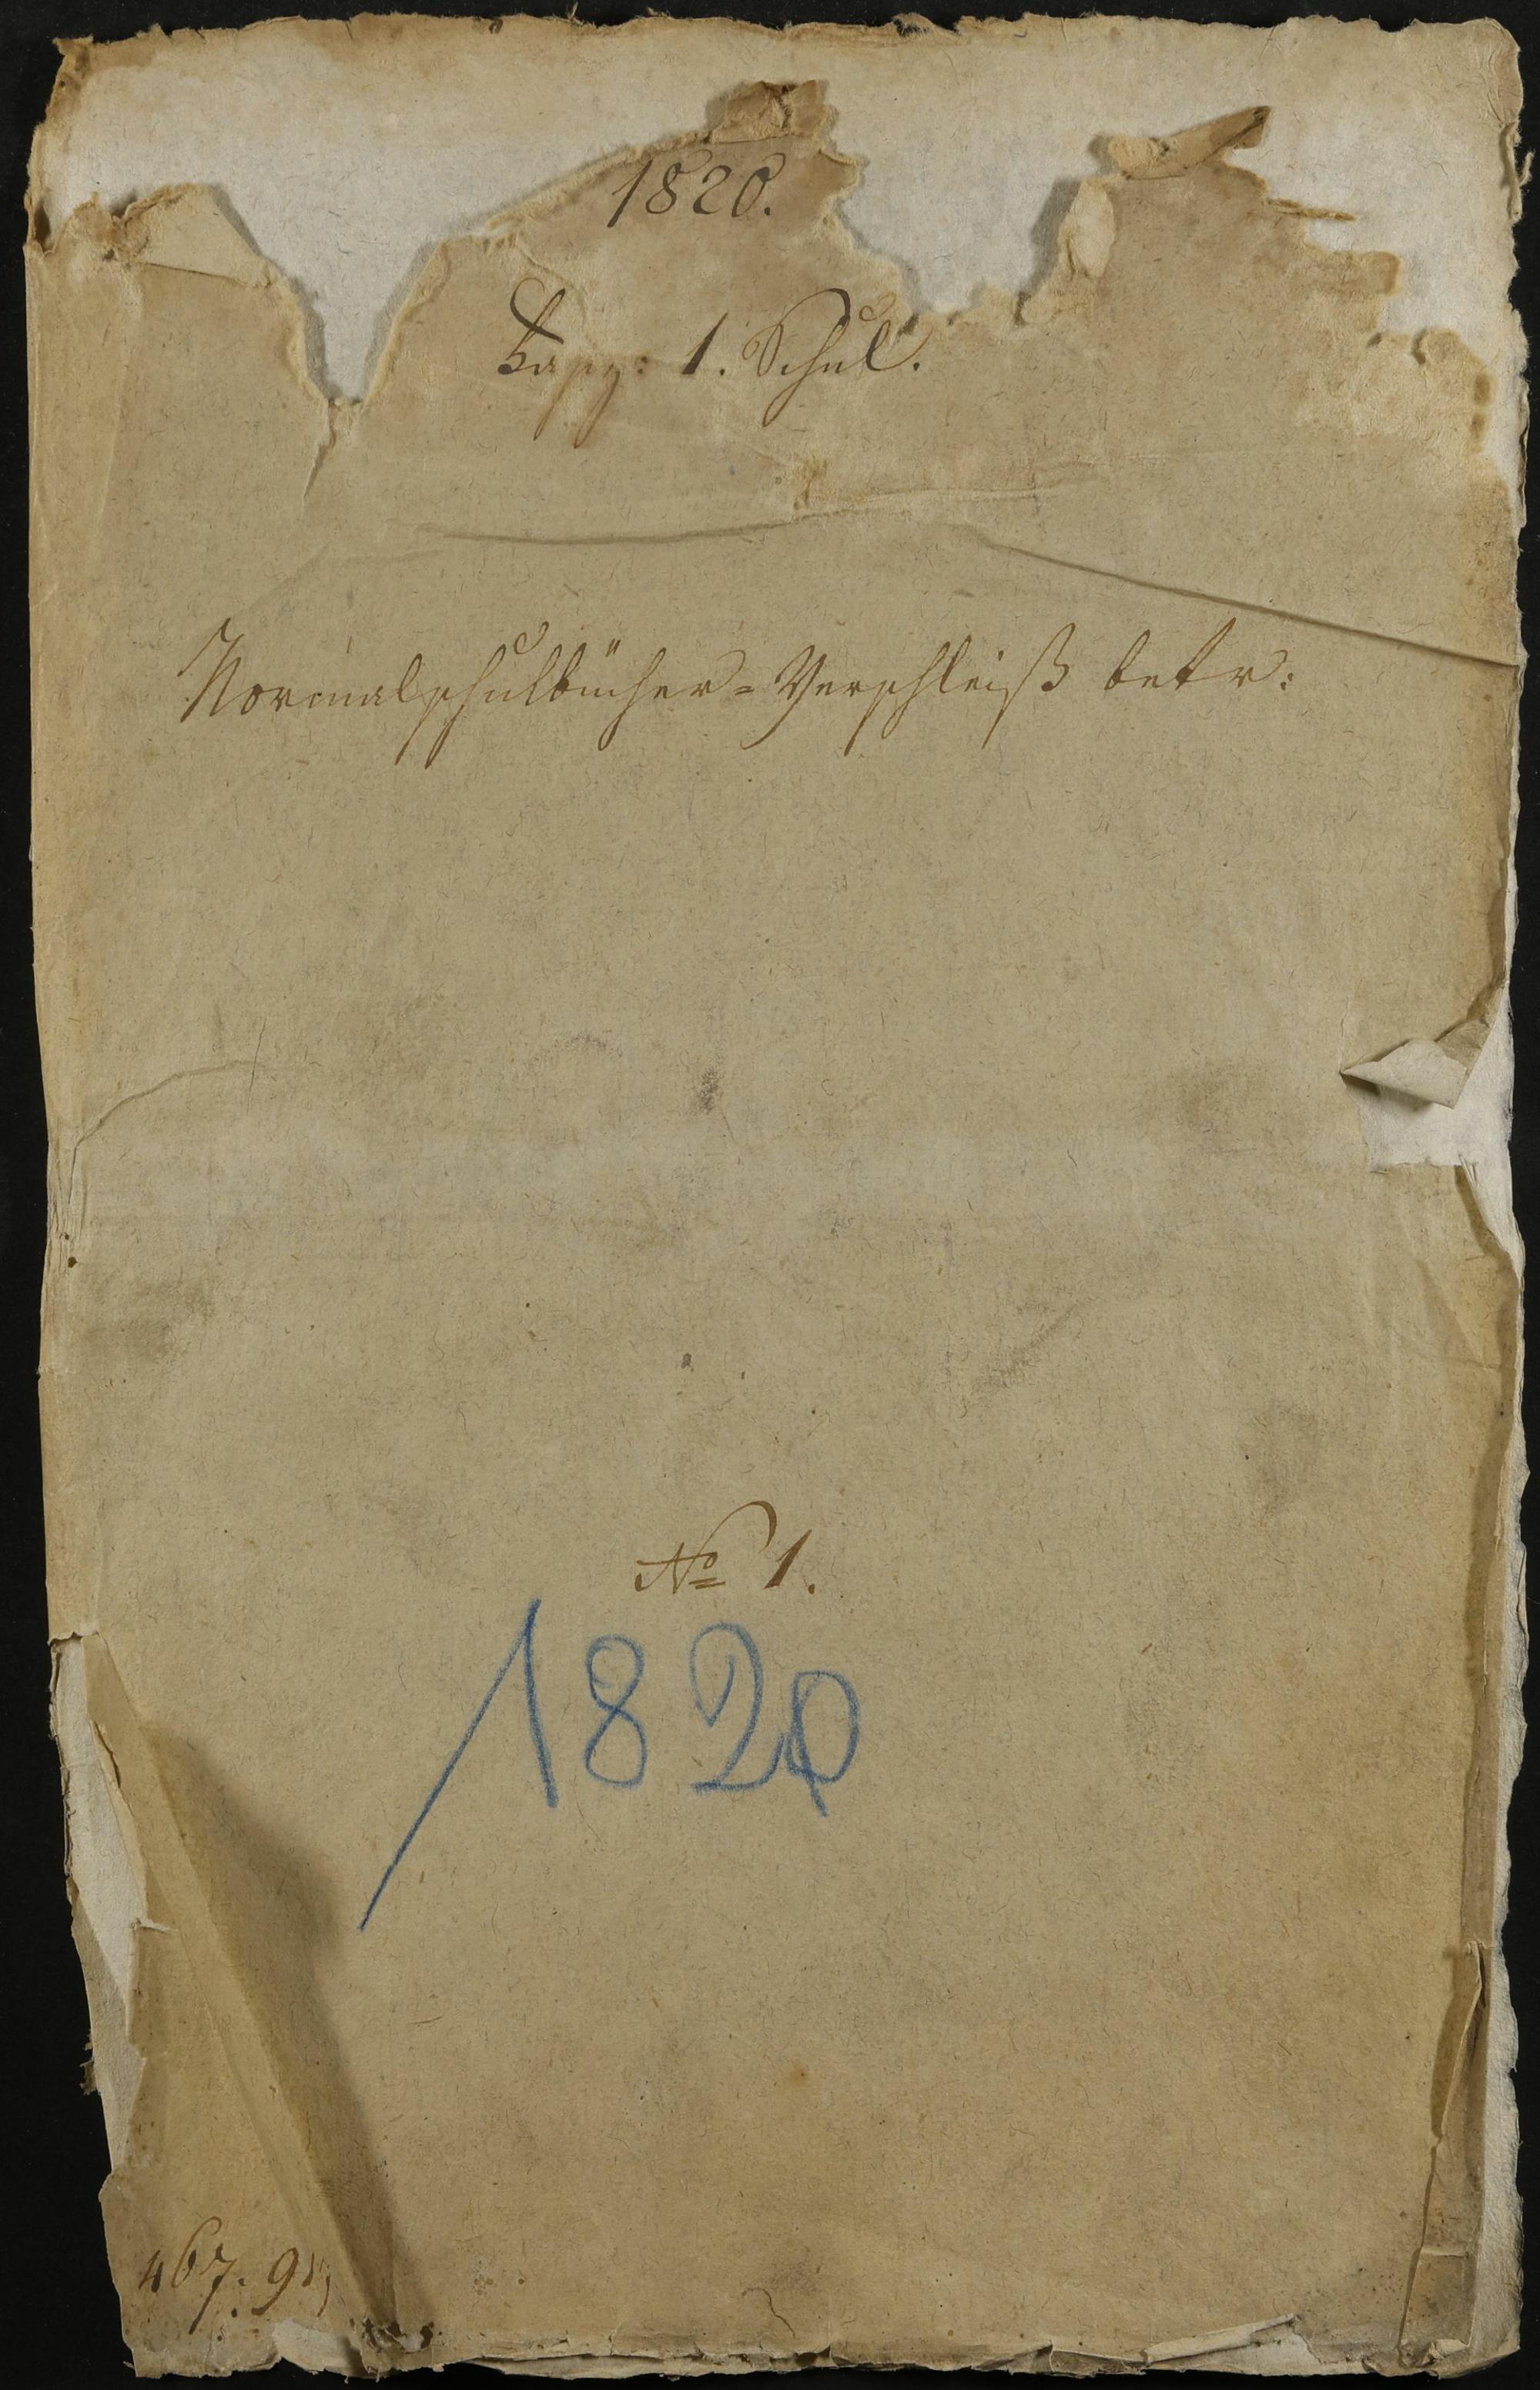 1820.
Fasz: 1. Schul.
Normalschulbücher=Verschleiß betr:
No 1.
1820